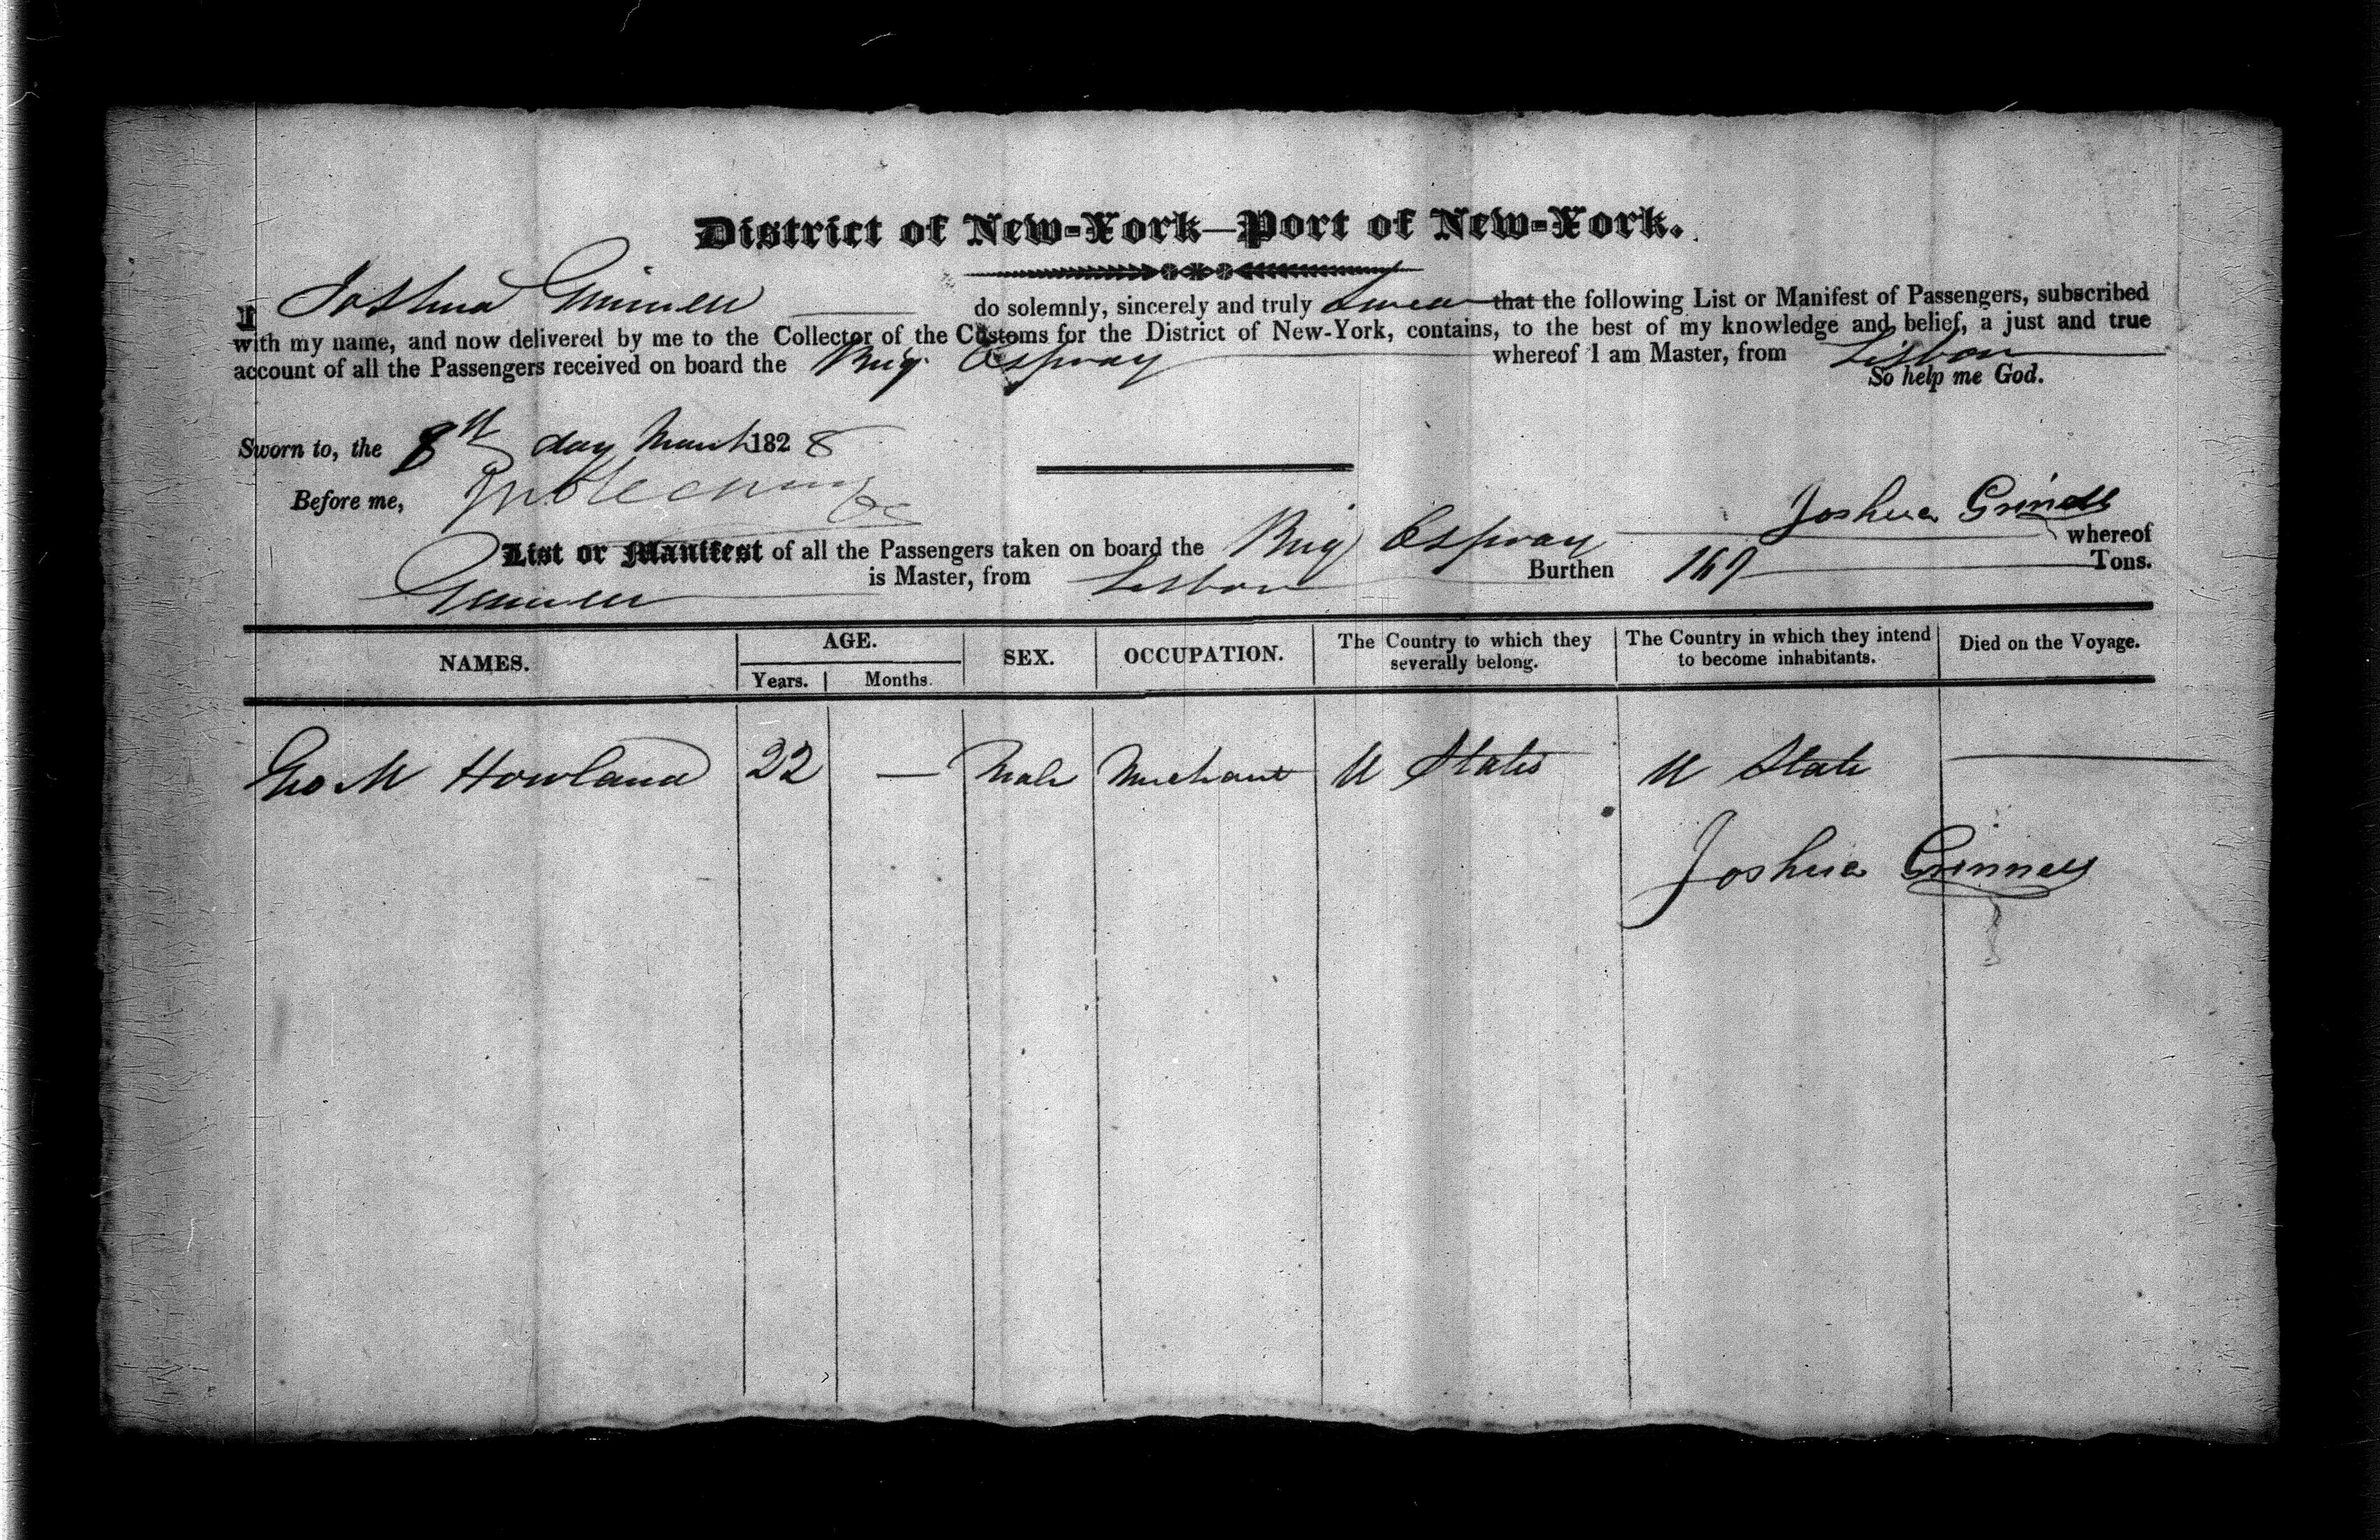 District of New-York—Port of New-York.
I Joshua Grinnell do solemnly, sincerely and truly swear that the following List or Manifest of Passengers, subscribed
with my name, and now delivered by me to the Collector of the Customs for the District of New-York, contains, to the best of my knowledge and belief, a just and true
account of all the Passengers received on board the Brig Ospray whereof I am Master, from Lisbon
So help me God.
Sworn to, the 8th day March 1828
Before me,
Joshua Grinell
List or Manifest of all the Passengers taken on board the Brig Ospray whereof
Grinnell is Master, from Lisbon Burthen 169 Tons.
NAMES. AGE. SEX. OCCUPATION. The Country to which they severally belong. The Country in which they intend to become inhabitants. Died on the Voyage.
Years. Months.
Geo M Howland 22 — Male Merchant U States U State
Joshua Grinnell